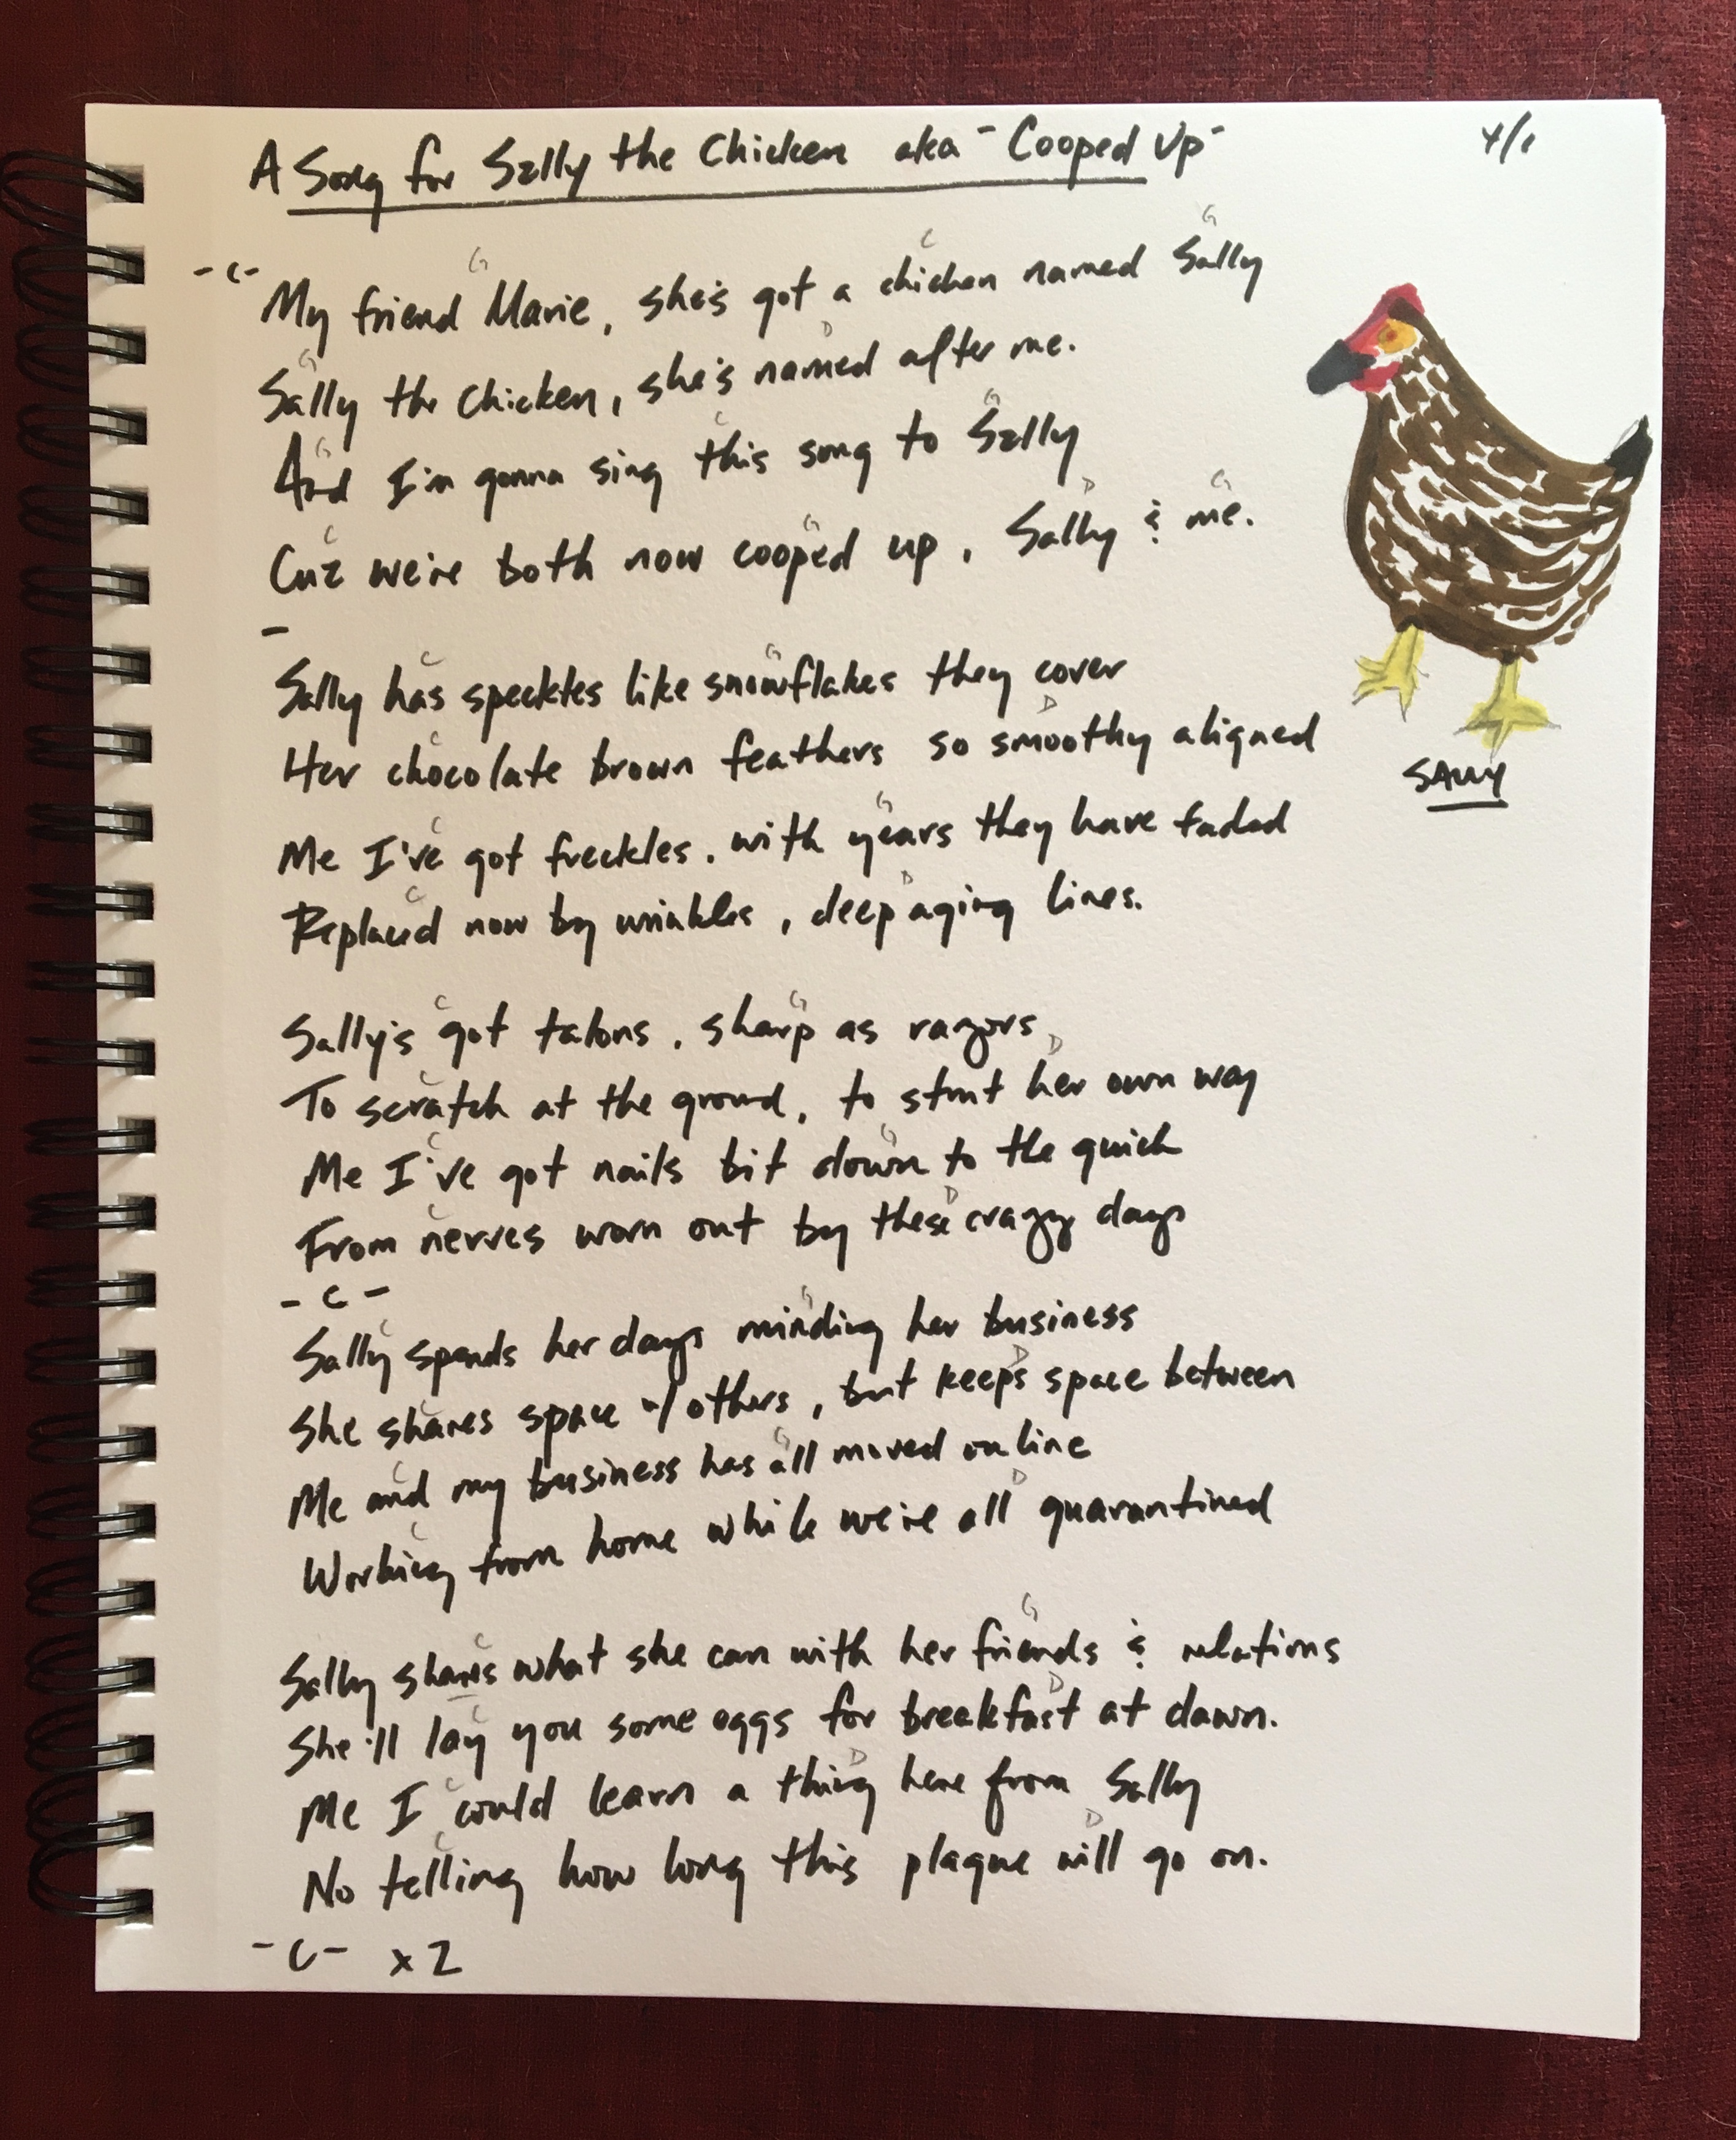 A Song for Sally the Chicken aka "Cooped Up"
4/1
-C-
G C G
My friend Marie, she's got a chicken named Sally
G D
Sally the Chicken, she's named after me.
G C G
And I'm gonna sing this song to Sally
C G D G
Cuz we're both now cooped up, Sally & me.
-
C G
Sally has speckles like snowflakes they cover
C D
Her chocolate brown feathers so smoothy aligned
SALLY
C G
Me I've got freckles, with years they have faded
C D
Replaced now by wrinkles, deep aging lines.
C G
Sally's got talons, sharp as razors
C D
To scratch at the ground, to strut her own way
C G
Me I've got nails bit down to the quick
C D
From nerves worn out by these crazy days
-C-
C G
Sally spends her days minding her business
C D
She shares space w/ others, but keeps space between
C G
Me and my business has all moved online
C D
Working from home while we're all quarantined
C G
Sally shares what she can with her friends & relations
C D
She'll lay you some eggs for breakfast at dawn.
C D
Me I could learn a thing here from Sally
C D
No telling how long this plague will go on.
-C- x2